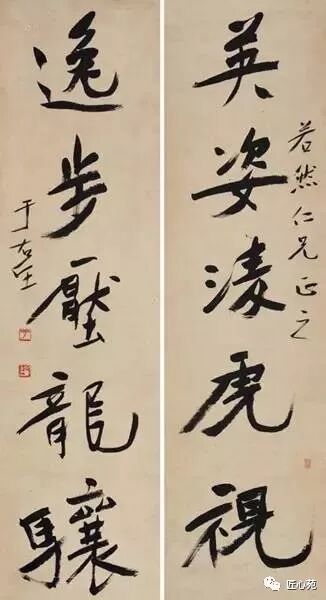 若然仁兄正之
英姿淩虎視
逸步壓龍驤
于右任
匠心苑